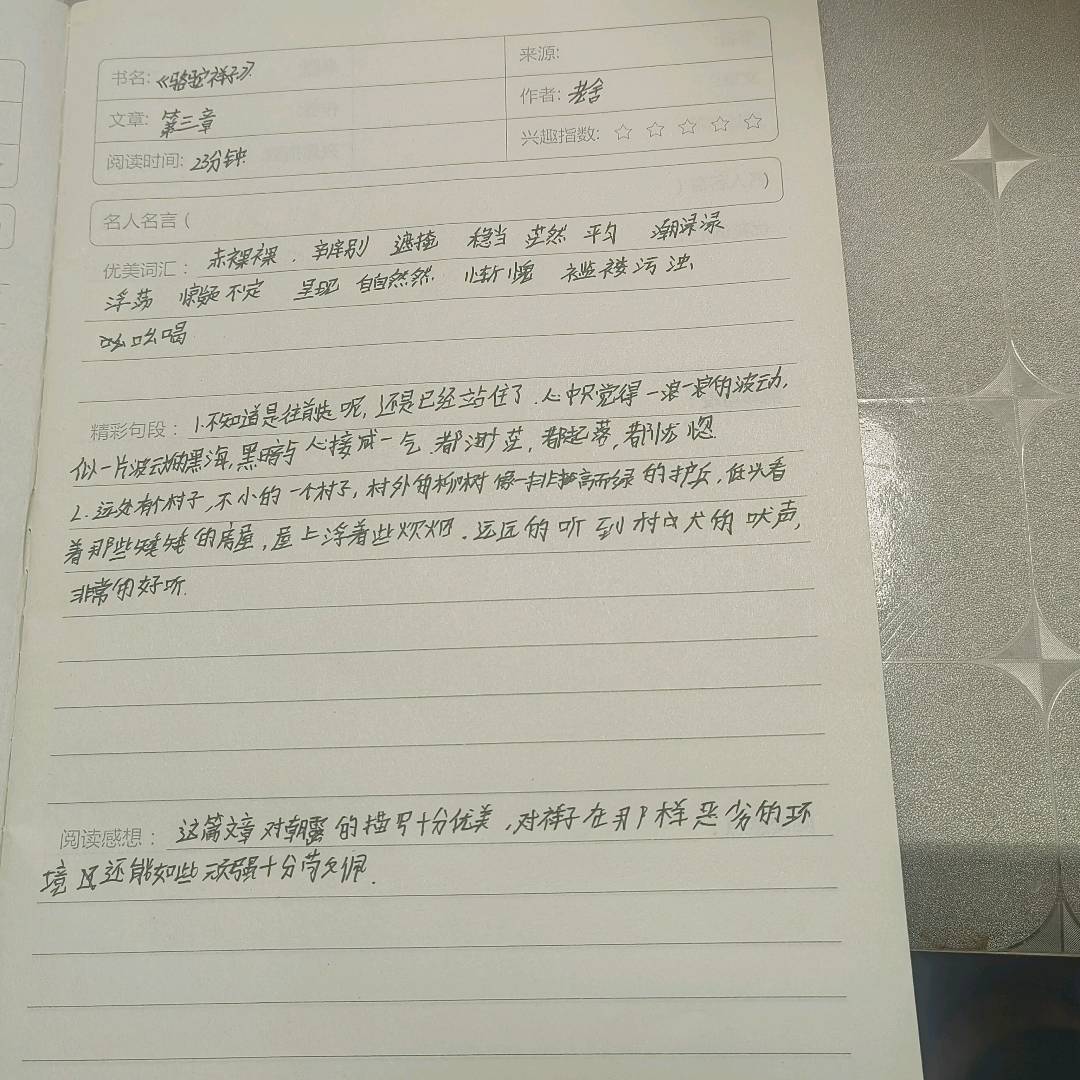 书名: 《骆驼祥子》 来源:
文章: 第三章 作者: 老舍
阅读时间: 23分钟 兴趣指数: ☆ ☆ ☆ ☆ ☆
名人名言 ( )
优美词汇: 赤裸裸 . 辨别 遮掩 稳当 茫然 平匀 潮渌渌
浮荡 惊疑不定 呈现 自自然然 惭愧 褴褛污浊
吆吆喝
精彩句段: 1.不知道是往前走呢,还是已经站住了.心中只觉得一浪一浪的波动,
似一片波动的黑海,黑暗与心接成一气.都渺茫,都起落,都恍惚.
2.远处有个村子,不小的一个村子,村外的柳树像一排高而绿的护兵,低头看
着那些矮矮的房屋,屋上浮着些炊烟.远远的听到村犬的吠声,
非常的好听.
阅读感想: 这篇文章对朝霞的描写十分优美,对祥子在那样恶劣的环
境还能如此顽强十分敬佩.